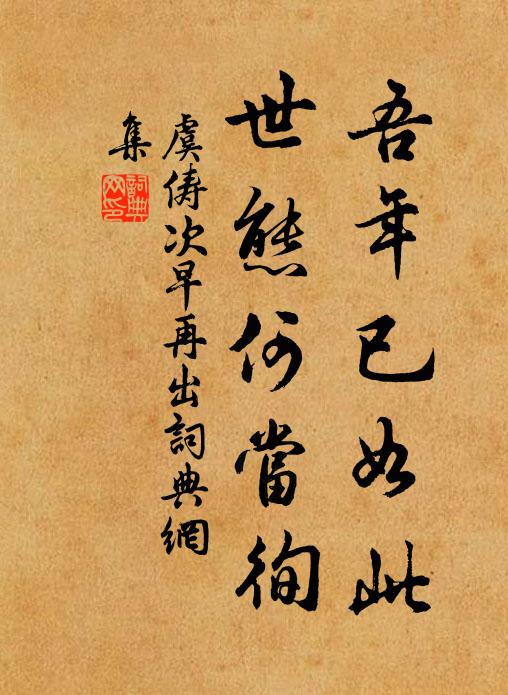 吾年已如此
世態何當徇
虞儔次早再出詞典網
集
詞典
网印